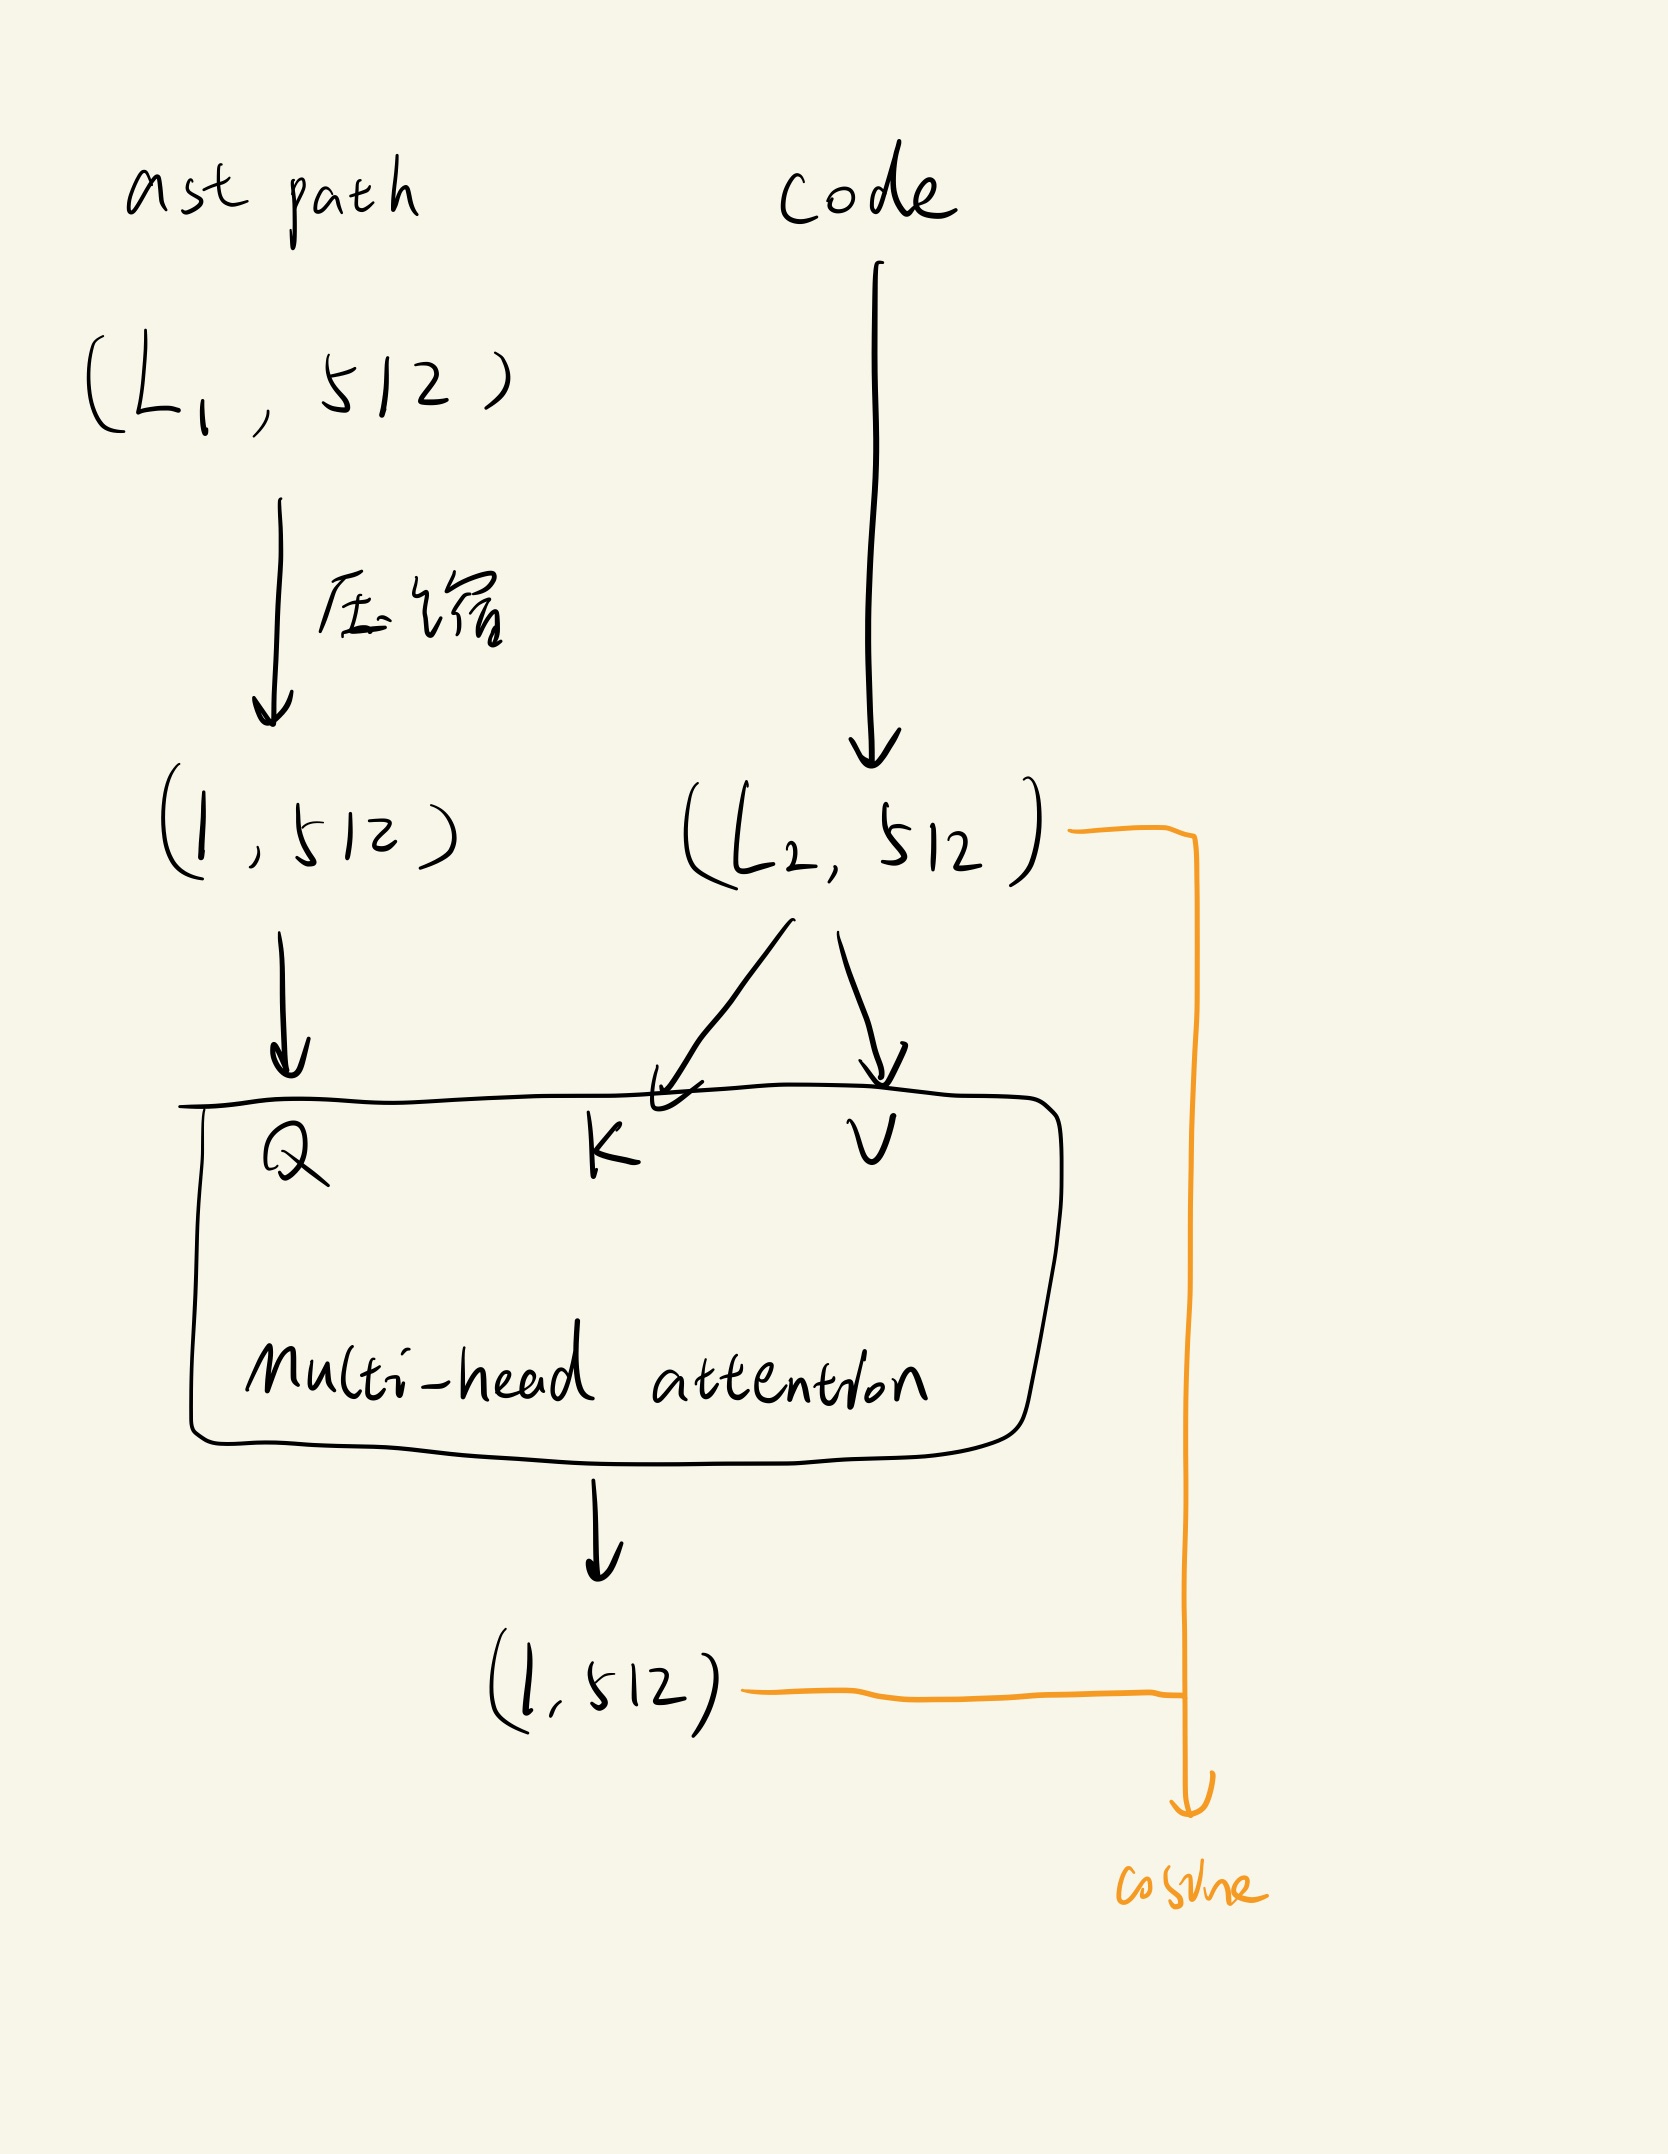 ast path
code
(L₁, 512)
压缩
(1, 512)
(L₂, 512)
Q K V
Multi-head attention
(1, 512)
cosine